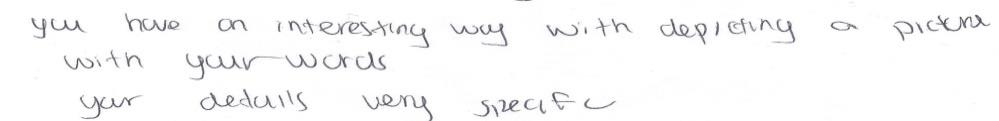 you have an interesting way with depicting a picture
with your words
your details very specific